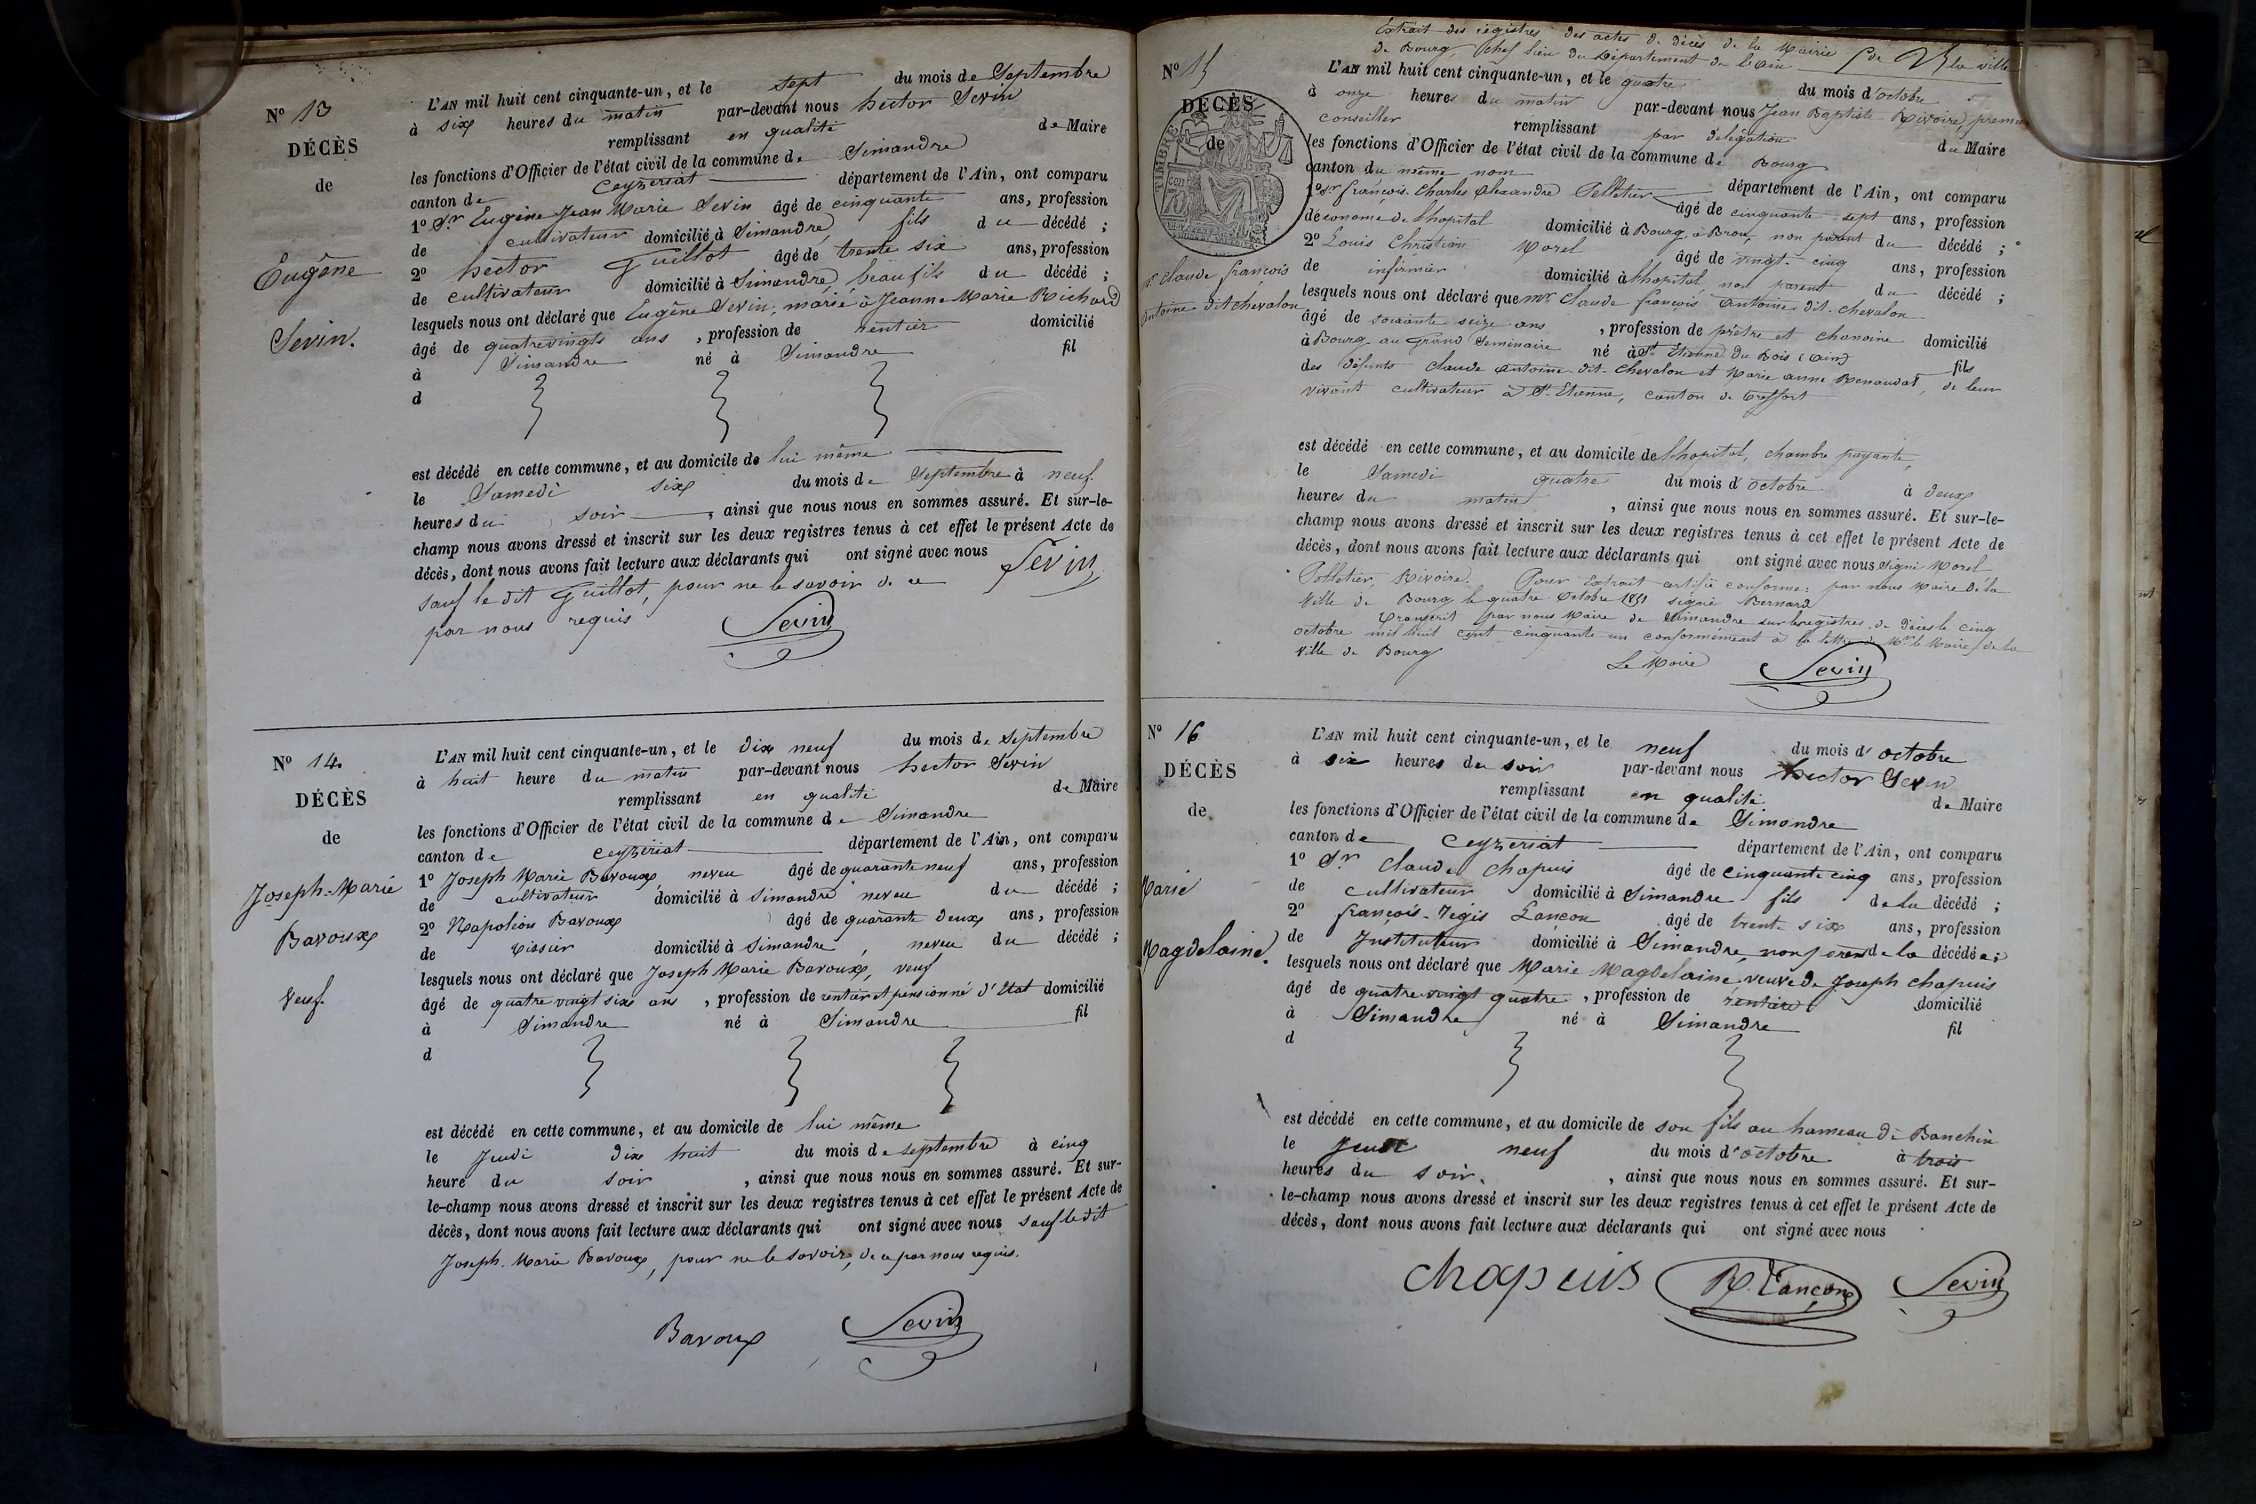 N° 13
DÉCÈS
de
Eugène
Sevin.
L'AN mil huit cent cinquante-un, et le sept du mois de Septembre
à six heures du matin par-devant nous hector Sevin
remplissant en qualité de Maire
les fonctions d'Officier de l'état civil de la commune de Simandre
canton de Ceyzeriat département de l'Ain, ont comparu
1° Sr Eugène Jean Marie Sevin âgé de cinquante ans, profession
de cultivateur domicilié à Simandre fils du décédé ;
2° hector Guillot âgé de trente six ans, profession
de cultivateur domicilié à Simandre, beau fils du décédé ;
lesquels nous ont déclaré que Eugène Sevin, marié à Jeanne Marie Richard
âgé de quatrevingts ans , profession de rentier domicilié
à Simandre né à Simandre fil
d
est décédé en cette commune, et au domicile de lui même
le Samedi six du mois de Septembre à neuf
heures du soir , ainsi que nous nous en sommes assuré. Et sur-le-
champ nous avons dressé et inscrit sur les deux registres tenus à cet effet le présent Acte de
décès, dont nous avons fait lecture aux déclarants qui ont signé avec nous
sauf le dit Guillot, pour ne le savoir de ce
par nous requis
Sevin
Sevin
N° 14.
DÉCÈS
de
Joseph-Marie
Bavoux
Veuf.
L'AN mil huit cent cinquante-un, et le dix neuf du mois de Septembre
à huit heure du matin par-devant nous hector Sevin
remplissant en qualité de Maire
les fonctions d'Officier de l'état civil de la commune de Simandre
canton de Ceyzeriat département de l'Ain, ont comparu
1° Joseph Marie Bavoux, neveu âgé de quarante neuf ans, profession
de cultivateur domicilié à Simandre neveu du décédé ;
2° Napoléon Bavoux âgé de quarante deux ans, profession
de tissier domicilié à Simandre, neveu du décédé ;
lesquels nous ont déclaré que Joseph Marie Bavoux, veuf
âgé de quatre vingt six ans , profession de rentier et pensionné d'Etat domicilié
à Simandre né à Simandre fil
d
est décédé en cette commune, et au domicile de lui même
le Jeudi dix huit du mois de septembre à cinq
heure du soir , ainsi que nous nous en sommes assuré. Et sur-
le-champ nous avons dressé et inscrit sur les deux registres tenus à cet effet le présent Acte de
décès, dont nous avons fait lecture aux déclarants qui ont signé avec nous sauf le dit
Joseph-Marie Bavoux, pour ne le savoir, de ce par nous requis.
Bavoux Sevin
Extrait des registres des actes de décès de la Mairie de la ville
de Bourg, chef lieu du Département de l'Ain
N° 15
DÉCÈS
de
TIMBRE
Claude françois
Antoine dit Chevalon
L'AN mil huit cent cinquante-un, et le quatre du mois d'octobre
à onze heures du matin par-devant nous Jean Baptiste Rivoire, premier
conseiller remplissant par délégation du Maire
les fonctions d'Officier de l'état civil de la commune de Bourg
canton du même nom département de l'Ain, ont comparu
1° Sr françois Charles Alexandre Pelletier âgé de cinquante sept ans, profession
de econome de l'hopital domicilié à Bourg, à Brou, non parent du décédé ;
2° Louis Christian Morel âgé de vingt-cinq ans, profession
de infirmier domicilié à l'hopital, non parent du décédé ;
lesquels nous ont déclaré que mr Claude françois Antoine dit Chevalon
âgé de soixante seize ans , profession de prêtre et chanoine domicilié
à Bourg au Grand Seminaire né à St Etienne du Bois (Ain) fils
des défunts Claude Antoine dit Chevalon et Marie Anne Renaudat, de leur
vivant cultivateur à St Etienne, canton de Treffort
est décédé en cette commune, et au domicile de l'hopital, chambre payante,
le Samedi quatre du mois d'octobre à deux
heures du matin , ainsi que nous nous en sommes assuré. Et sur-le-
champ nous avons dressé et inscrit sur les deux registres tenus à cet effet le présent Acte de
décès, dont nous avons fait lecture aux déclarants qui ont signé avec nous signé Morel
Pelletier, Rivoire. Pour Extrait certifié conforme: par nous Maire de la
Ville de Bourg le quatre Octobre 1851 signé Bernard
Transcrit par nous Maire de Simandre sur les registres de Décès le cinq
octobre mil huit cent cinquante un conformément à la lettre de Mr le Maire de la
Ville de Bourg
Le Maire Sevin
N° 16
DÉCÈS
de
Marie
Magdelaine.
L'AN mil huit cent cinquante-un, et le neuf du mois d'octobre
à six heures du soir par-devant nous hector Sevin
remplissant en qualité de Maire
les fonctions d'Officier de l'état civil de la commune de Simandre
canton de Ceyzeriat département de l'Ain, ont comparu
1° Sr Claude Chapuis âgé de cinquante cinq ans, profession
de cultivateur domicilié à Simandre fils de la décédé ;
2° françois-Régis Lançon âgé de trente six ans, profession
de Instituteur domicilié à Simandre, non parent de la décédée ;
lesquels nous ont déclaré que Marie Magdelaine, veuve de Joseph Chapuis
âgé de quatre vingt quatre , profession de rentière domicilié
à Simandre né à Simandre fil
d
est décédé en cette commune, et au domicile de son fils au hameau de Banchin
le Jeudi neuf du mois d'octobre à trois
heures du soir. , ainsi que nous nous en sommes assuré. Et sur-
le-champ nous avons dressé et inscrit sur les deux registres tenus à cet effet le présent Acte de
décès, dont nous avons fait lecture aux déclarants qui ont signé avec nous
Chapuis R. Lançon Sevin